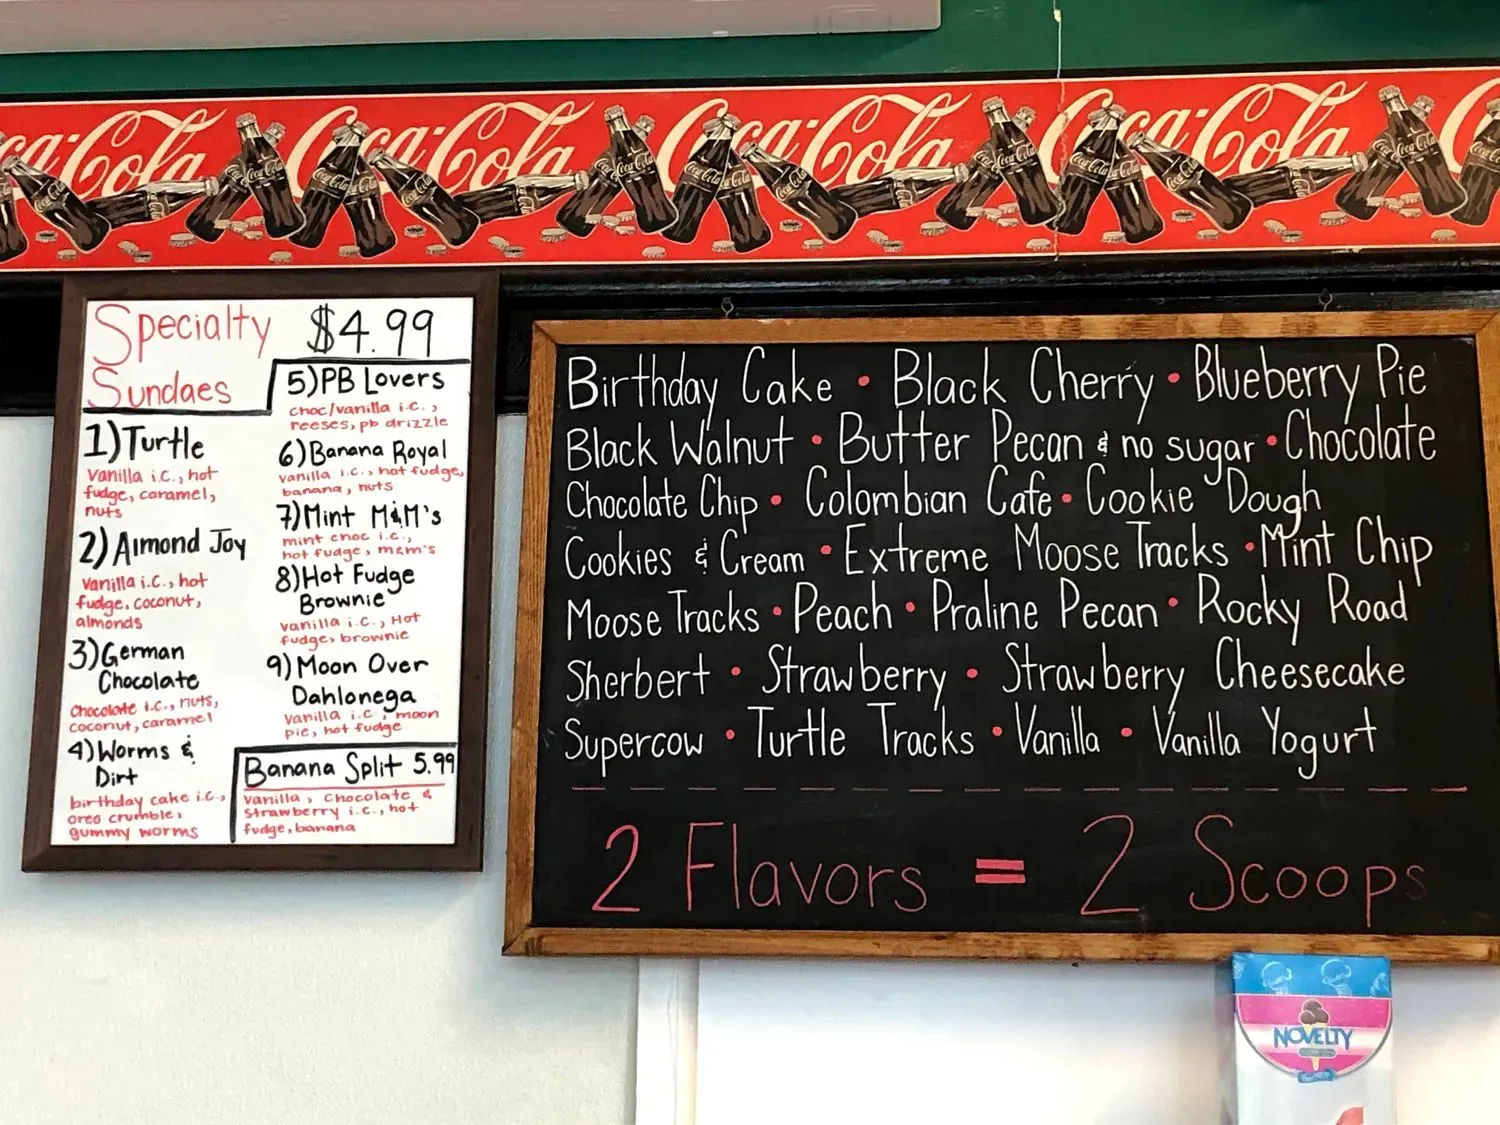 Coca-Cola Coca-Cola Coca-Cola Coca-Cola
Specialty $4.99
Sundaes
1) Turtle
vanilla i.c., hot
fudge, caramel,
nuts
2) Almond Joy
vanilla i.c., hot
fudge, coconut,
almonds
3) German
Chocolate
Chocolate i.c., nuts,
coconut, caramel
4) Worms &
Dirt
birthday cake i.c.,
oreo crumble,
gummy worms
5) PB Lovers
choc/vanilla i.c.,
reeses, pb drizzle
6) Banana Royal
vanilla i.c., hot fudge,
banana, nuts
7) Mint M&M's
mint choc i.c.,
hot fudge, m&m's
8) Hot Fudge
Brownie
vanilla i.c., Hot
fudge, brownie
9) Moon Over
Dahlonega
vanilla i.c., moon
pie, hot fudge
Banana Split 5.99
vanilla, chocolate &
strawberry i.c., hot
fudge, banana
Birthday Cake • Black Cherry • Blueberry Pie
Black Walnut • Butter Pecan & no sugar • Chocolate
Chocolate Chip • Colombian Cafe • Cookie Dough
Cookies & Cream • Extreme Moose Tracks • Mint Chip
Moose Tracks • Peach • Praline Pecan • Rocky Road
Sherbert • Strawberry • Strawberry Cheesecake
Supercow • Turtle Tracks • Vanilla • Vanilla Yogurt
2 Flavors = 2 Scoops
NOVELTY